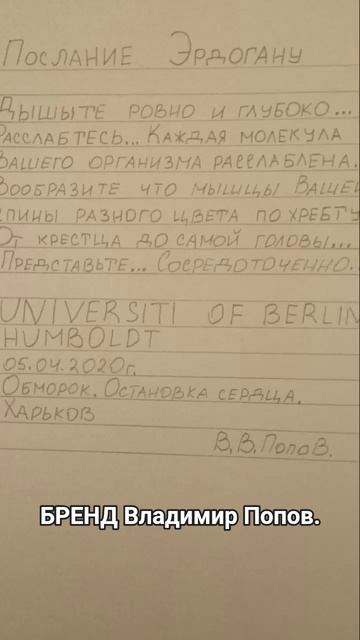 Послание Эрдогану
Дышыте ровно и глубоко...
Расслабтесь... Каждая молекула
Вашего организма расслаблена.
Вообразите что мышцы Вашей
спины разного цвета по хребту
От крестца до самой головы...
Представьте... Сосредоточенно...
UNIVERSITI OF BERLIN
HUMBOLDT
05.04.2020г.
Обморок. Остановка сердца.
Харьков
В.В. Попов.
БРЕНД Владимир Попов.